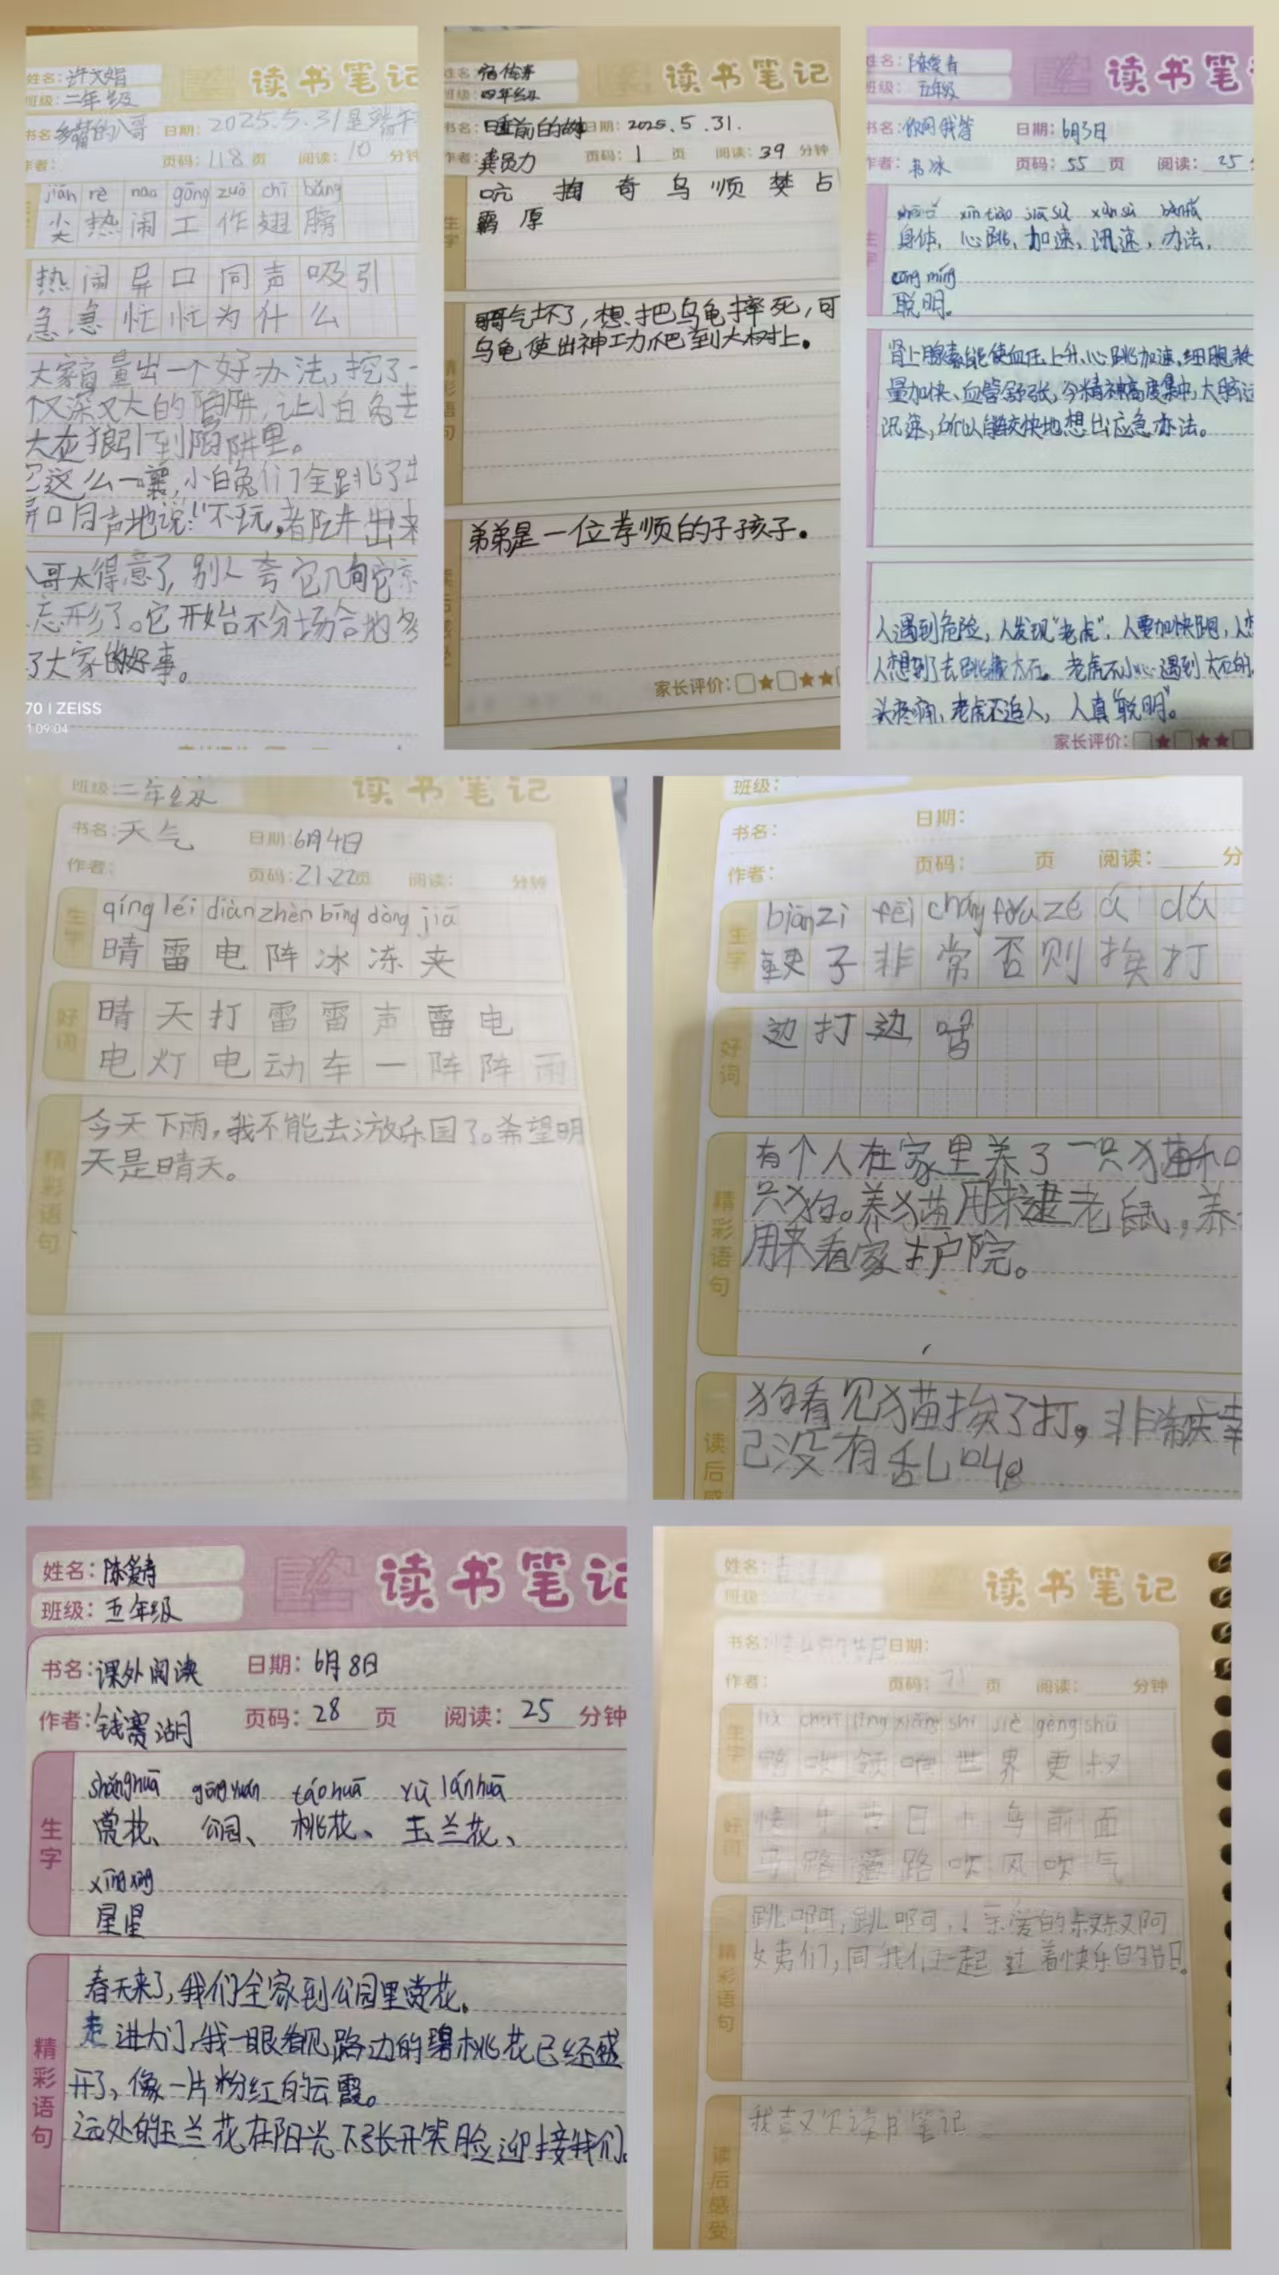 姓名:许文娟
班级:二年级
读书笔记
书名 的八哥 日期:2025.5.31是端午
作者: 页码:118页 阅读:10分钟
jiān rè nao gōng zuò chì bǎng
尖热闹工作翅膀
热闹异口同声吸引
急急忙忙为什么
大家商量出一个好办法,挖了一
个又深又大的陷阱,让小白兔去
大灰狼引到陷阱里。
这么一嚷,小白兔们全跳了
异口同声地说:"不玩,
八哥太得意了,别人夸它几句它
忘形了。它开始不分场合地
了大家的好事。
70 | ZEISS
09:04
姓名:
班级:四年级
读书笔记
书名:睡前的故事 日期:2025.5.31.
作者:龚员力 页码:1页 阅读:39分钟
生字
吭 掏 奇 乌 顺 焚 占
霸 厚
气坏了,想把乌龟摔死,可
乌龟使出神工力爬到大树上。
弟弟是一位孝顺的子孩子。
家长评价:□★□★★
姓名:陈爱青
班级:五年级
读书笔
书名:你问我答 日期:6月3日
作者:书冰 页码:55页 阅读:25
xīn tiào jiā sù xùn sù bàn fǎ
身体,心跳,加速,讯速,办法,
cōng míng
聪明。
肾上腺素能使血压上升、心跳加速,细胞耗
量加快、血管舒张,令精神高度集中,大脑运
讯速,所以能较快地想出应急办法。
人遇到危险,人发现"老虎",人要加快跑,人想
人想到了去跳 大石。老虎不小心遇到大石的
头疼痛,老虎不追人,人真"聪明"。
家长评价:□★□★★□
班级:二年级
读书笔记
书名:天气 日期:6月4日
作者: 页码:21、22页 阅读: 分钟
生字
qíng léi diàn zhèn bīng dòng jiā
晴雷电阵冰冻夹
好词
晴天打雷雷声雷电
电灯电动车一阵阵雨
精彩语句
今天下雨,我不能去游乐园了。希望明
天是晴天。
班级:
书名: 日期:
作者: 页码: 页 阅读: 分
生字
biān zi fēi cháng fǒu zé ái dǎ
鞭子非常否则挨打
好词
边打边
精彩语句
有个人在家里养了一只猫和
只狗。养猫用来逮老鼠,养
用来看家护院。
读后感
狗看见猫挨了打,非常庆幸
己没有乱叫。
姓名:陈爱青
班级:五年级
读书笔记
书名:课外阅读 日期:6月8日
作者:钱赛湖 页码:28页 阅读:25分钟
生字
shǎng huā gōng yuán táo huā yù lán huā
赏花、 公园、 桃花、 玉兰花、
xīng xing
星星
精彩语句
春天来了,我们全家到公园里赏花。
走进大门,我一眼看见路边的碧桃花已经盛
开了,像一片粉红的云霞。
远处的玉兰花在阳光下张开笑脸迎接我们。
姓名:
班级:
读书笔记
书名: 日期:
作者: 页码: 页 阅读: 分钟
生字
chuī lǐng xiǎng shì jiè gèng shū
吹领响世界更叔
好词
快牛节日小鸟前面
马路 路吹风吹气
精彩语句
跳啊,跳啊,!亲爱的叔叔阿
姨们,同我们一起过着快乐的节日。
读后感受
我喜欢读书笔记